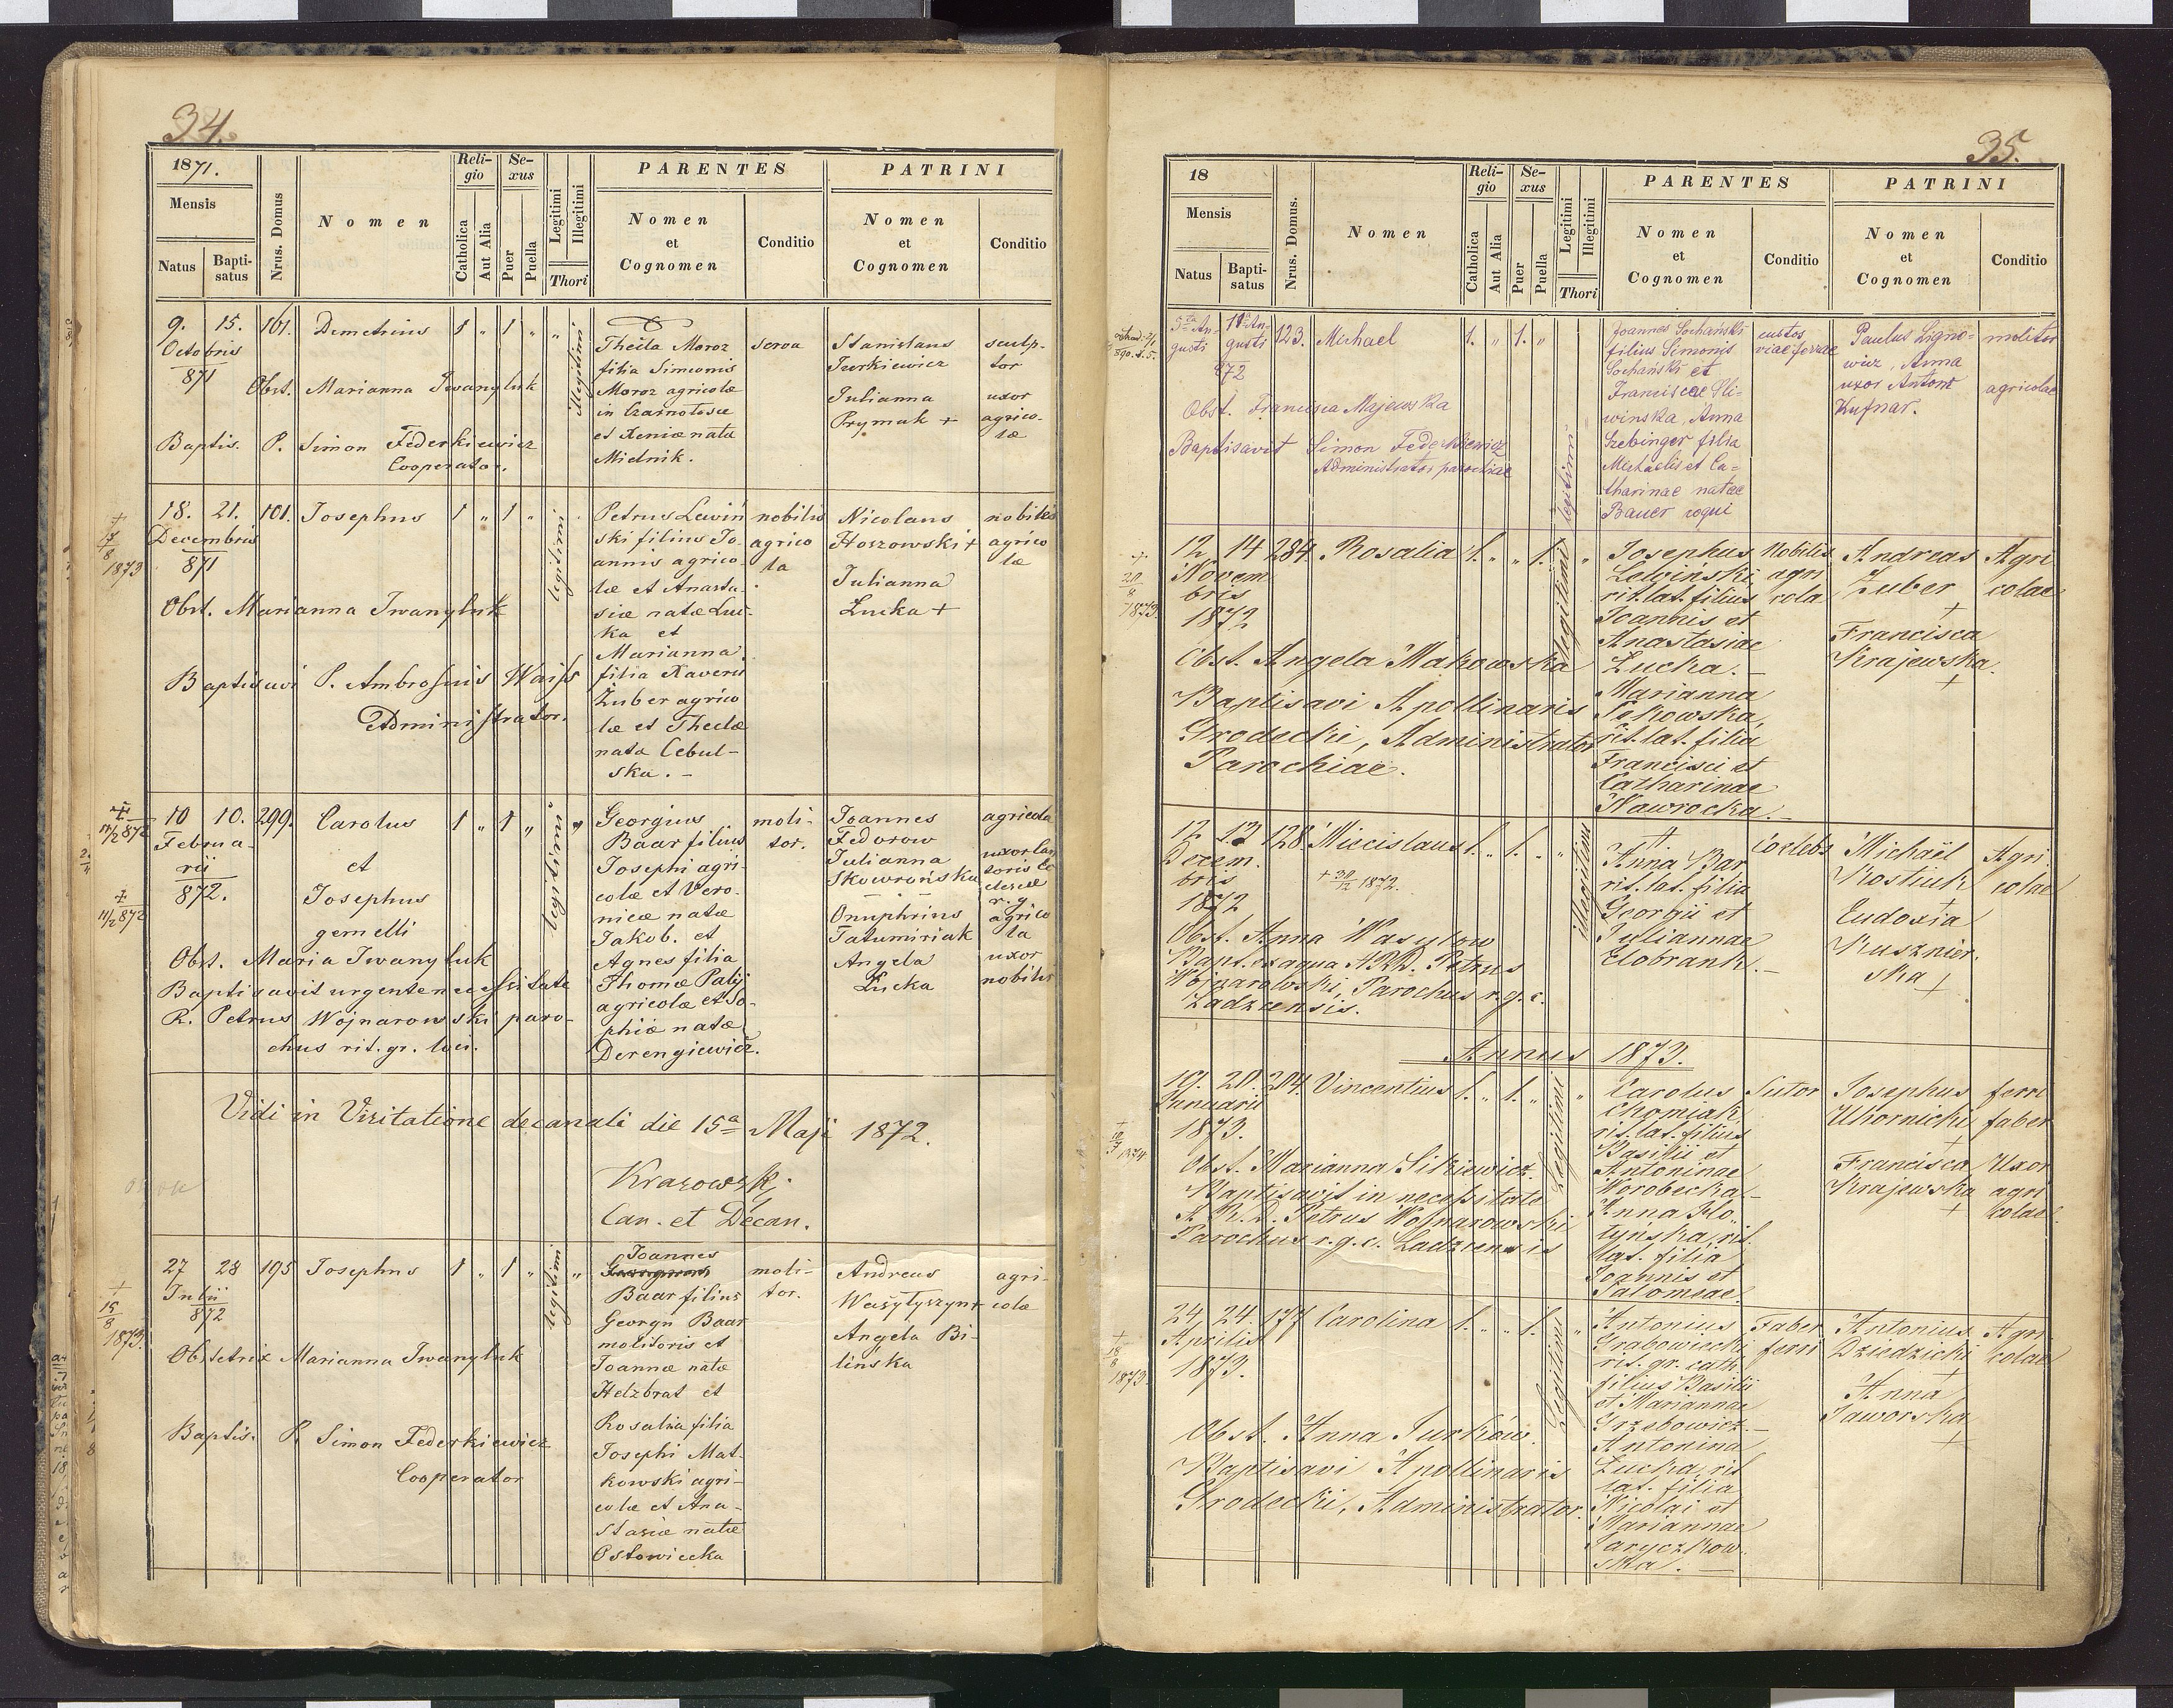 34.
1871.
Mensis
Natus
Bapti-
satus
Nrus. Domus
Nomen
Reli-
gio
Catholica
Aut Alia
Se-
xus
Puer
Puella
Legitimi
Illegitimi
Thori
PARENTES
Nomen
et
Cognomen
Conditio
PATRINI
Nomen
et
Cognomen
Conditio
9. 15. 101. Demetrius 1 " 1 " "
Octobris
871
Obst. Marianna Iwanyluk
Baptis. P. Simon Federkiewicz
Cooperator.
illegitimi
Thecla Moroz
filia Simeonis
Moroz agricolæ
in Czarnolosce
et Xeniæ natæ
Mielnik.
serva
Stanislaus
Turkiewicz
Julianna
Prymak +
sculp-
tor
uxor
agrico-
læ
+
17
8
1873
18. 21. 101. Josephus 1 " 1 "
Decembris
871
Obst. Marianna Iwanyluk
Baptisavi P. Ambrosius Waiss
Administrator.
legitimi
Petrus Lewiń
ski filius Jo-
annis agrico-
læ et Anasta-
siæ natæ Łuc-
ka et
Marianna
filia Xaverii
Żuber agrico
læ et Theclæ
nata Cebul-
ska. -
nobilis
agrico
la
Nicolaus
Hoszowski +
Julianna
Łucka +
nobilis
agrico
læ
+
11/2 872
+
11/2 872
10 10. 299. Carolus 1 " 1 " "
Februa-
rii
872.
et
Josephus
gemelli
Obst. Maria Iwanyluk
Baptisavit urgente necessitate
R. Petrus Wojnarowski paro-
chus rit. gr. loci.
legitimi
Georgius
Baar filius
Josephi agri-
colæ et Vero-
nicæ natæ
Jakob. et
Agnes filia
Thomæ Palij
agricolæ et So-
phiæ natæ
Derengiewicz.
moli-
tor.
Joannes
Fedorow
Julianna
Skowrońska
Onuphrius
Tatumiriak
Angela
Łucka
agricola
uxor can
toris ec
clesiæ
r. g.
agrico
la
uxor
nobilis
Vidi in Visitatione decanali die 15ª Maji 1872.
Krasowski
Can. et Decan.
+
15
8
1873.
27 28 195 Josephus 1 " 1 " "
Julii
872
Obstetrix Marianna Iwanyluk
Baptis. P. Simon Federkiewicz
Cooperator
legitimi
Joannes
Baar filius
Georgii Baar
molitoris et
Joannæ natæ
Helzbrat et
Rosalia filia
Josephi Mat-
kowski agri-
colæ et Ana-
stasiæ natæ
Ostowiecka
moli-
tor.
Andreas
Wasylyszyn +
Angela Bi-
lińska
agri-
colæ
35.
18
Mensis
Natus
Bapti-
satus
Nrus. Domus.
Nomen
Reli-
gio
Catholica
Aut Alia
Se-
xus
Puer
Puella
Legitimi
Illegitimi
Thori
PARENTES
Nomen
et
Cognomen
Conditio
PATRINI
Nomen
et
Cognomen
Conditio
5ta Au- 11a Au- 123. Michael 1. " 1. "
gusti gusti
872
Obst. Francisca Majewska
Baptisavit Simon Federkiewicz
Administrator parochiae
legitimi
Joannes Sochański
filius Simonis
Sochański et
Franciscae Sli-
winska, Anna
Szebinger filia
Michaelis et Ca-
tharinae natae
Bauer coqui
custos
viae ferrae
Paulus Ligno-
wicz, Anna
uxor Antoni
Kufnar.
molitor
agricolae
+
20
8
1873.
12 14 284. Rosalia 1. " " 1. "
Novem
bris
1872
Obst. Angela Makowska
Baptisavi Apollinaris
Grodecki, Administrator
Parochiae.
legitimi
Josephus
Lewiński,
rit. lat. filius
Joannis et
Anastasiae
Łucka. -
Marianna
Pekowska,
rit. lat. filia
Francisci et
Catharinae
Nawrocka. -
Nobilis
agri
cola
Andreas
Żuber
+
Francisca
Krajewska.
+
Agri
colae
12 13 128. Miecislaus 1. " 1. " "
Decem.
bris
1872
+ 30/12 1872.
Obst. Anna Wasylow
Bapt. ex aqua A.R.D. Petrus
Wojnarowski, Parochus r. g. c.
Ladzcensis.
illegitimi
+
Anna Bar
rit. lat. filia
Georgii et
Juliannae
Elobrank. -
Coelebs
Michaël
Kostiuk
Eudoxia
Kusznier.
ska +
Agri.
colae
Annus 1873.
+
10
7 1874
19. 20. 204. Vincentius 1. " 1. " "
Januarii
1873.
Obst. Marianna Sitkiewicz.
Baptisavit in necessitate
A.R.D. Petrus Wojnarowski
Parochus r. g. c. Ladzcensis
Legitimi
Carolus
Chomiak,
rit. lat. filius
Basilii et
Antoninae
Worobecka -
Anna Ho-
tyńska, rit.
lat. filia
Joannis et
Salomeae.
Sutor
Josephus
Uhornicki
+
Francisca
Krajewska
+
ferri
faber
Uxor
agri
colae.
+
18
8
1873.
24 24. 177 Carolina 1. " " 1. "
Aprilis
1873.
Obst. Anna Turków.
Baptisavi Apollinaris
Grodecki, Administrator.
Legitimi
Antonius
Grabowiecki,
rit. gr. cath.
filius Basilii
et Mariannae
Grzebowicz. -
Antonina
Łucka, rit.
lat. filia
Nicolai et
Mariannae
Jaryczkow-
ska. -
Faber
ferri
Antonius
Dziedzicki
Anna
Jaworska
+
Agri
colae